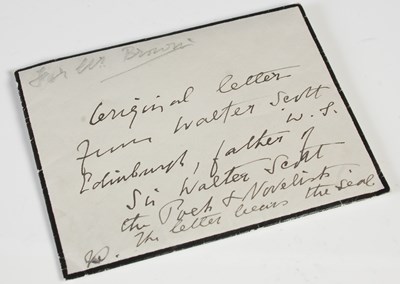 For Mr. Brown
Original letter
from Walter Scott
W.S.
Edinburgh, father of
Sir Walter Scott
the Poet & Novelist
The letter bears the Seal.